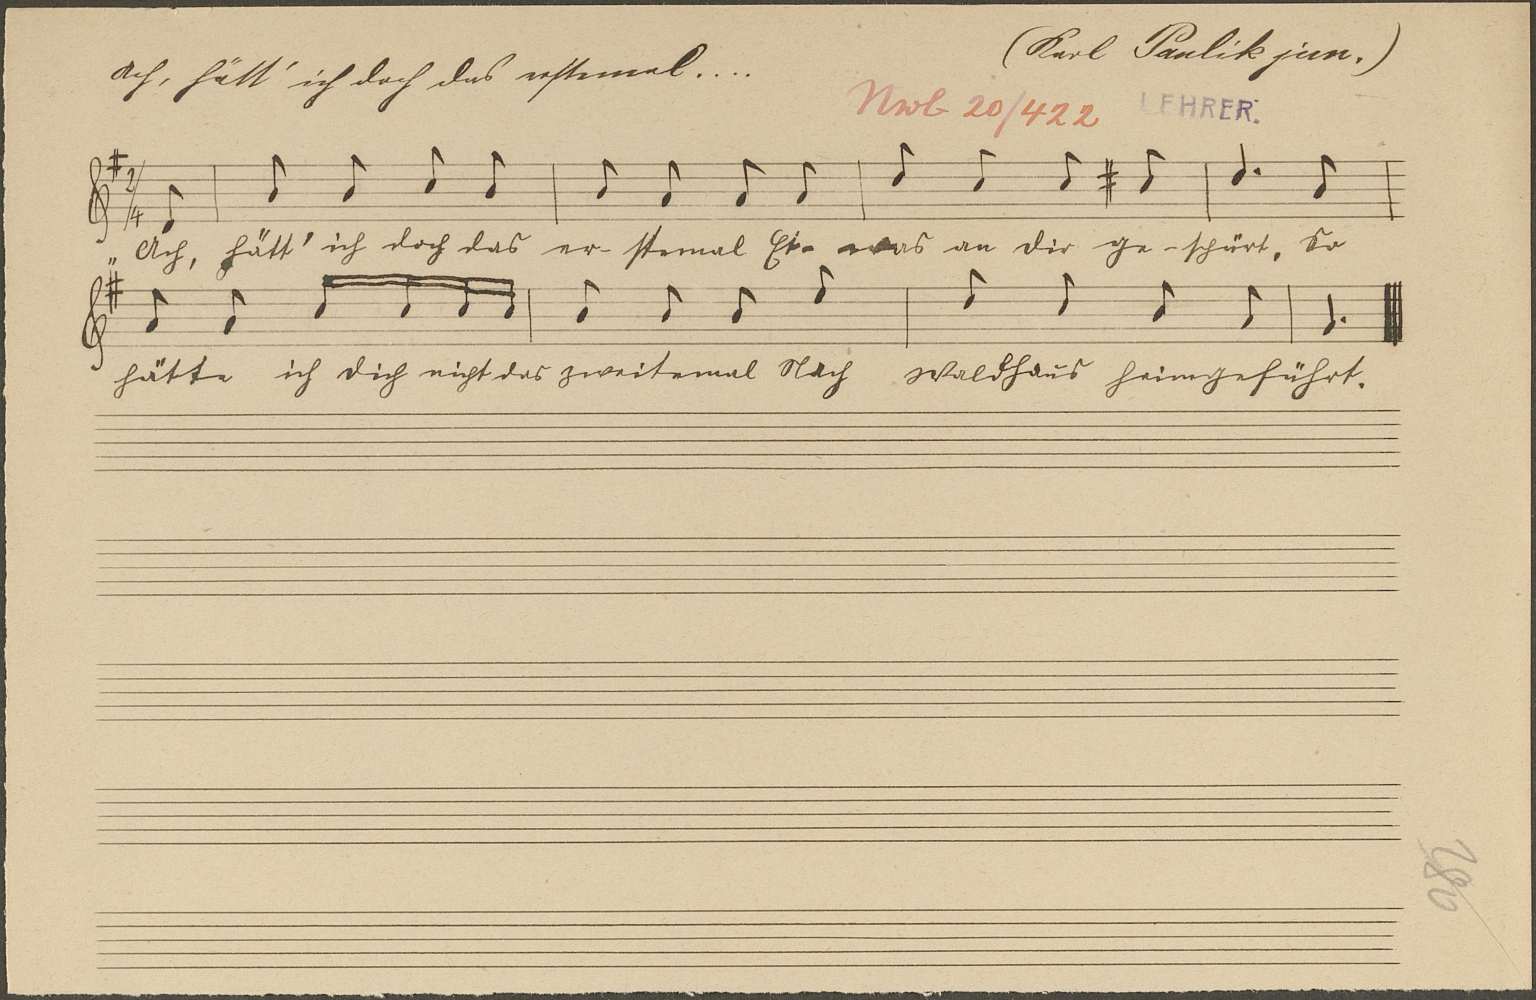 (Karl Paulik jun.)
Ach, hätt' ich doch das erstemal....
Nwb 20/422 LEHRER.
2/4
„Ach, hätt' ich doch das er-stemal Et- was an dir ge-spürt, So
hätte ich dich nicht das zweitemal Nach Waldhaus heimgeführt.